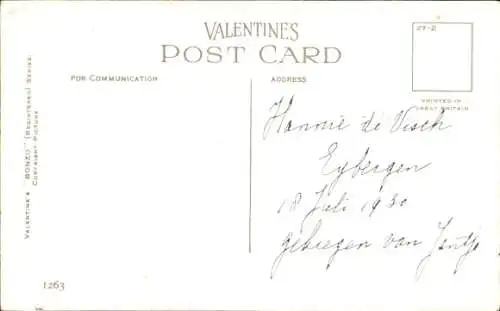 VALENTINES
POST CARD
27-2
FOR COMMUNICATION
ADDRESS
PRINTED IN
GREAT BRITAIN
VALENTINE'S "BONZO" (REGISTERED) SERIES.
COPYRIGHT PICTURE
Hannie de Visch
Eybergen
18 Juli 1930
gekregen van Jantje
1263